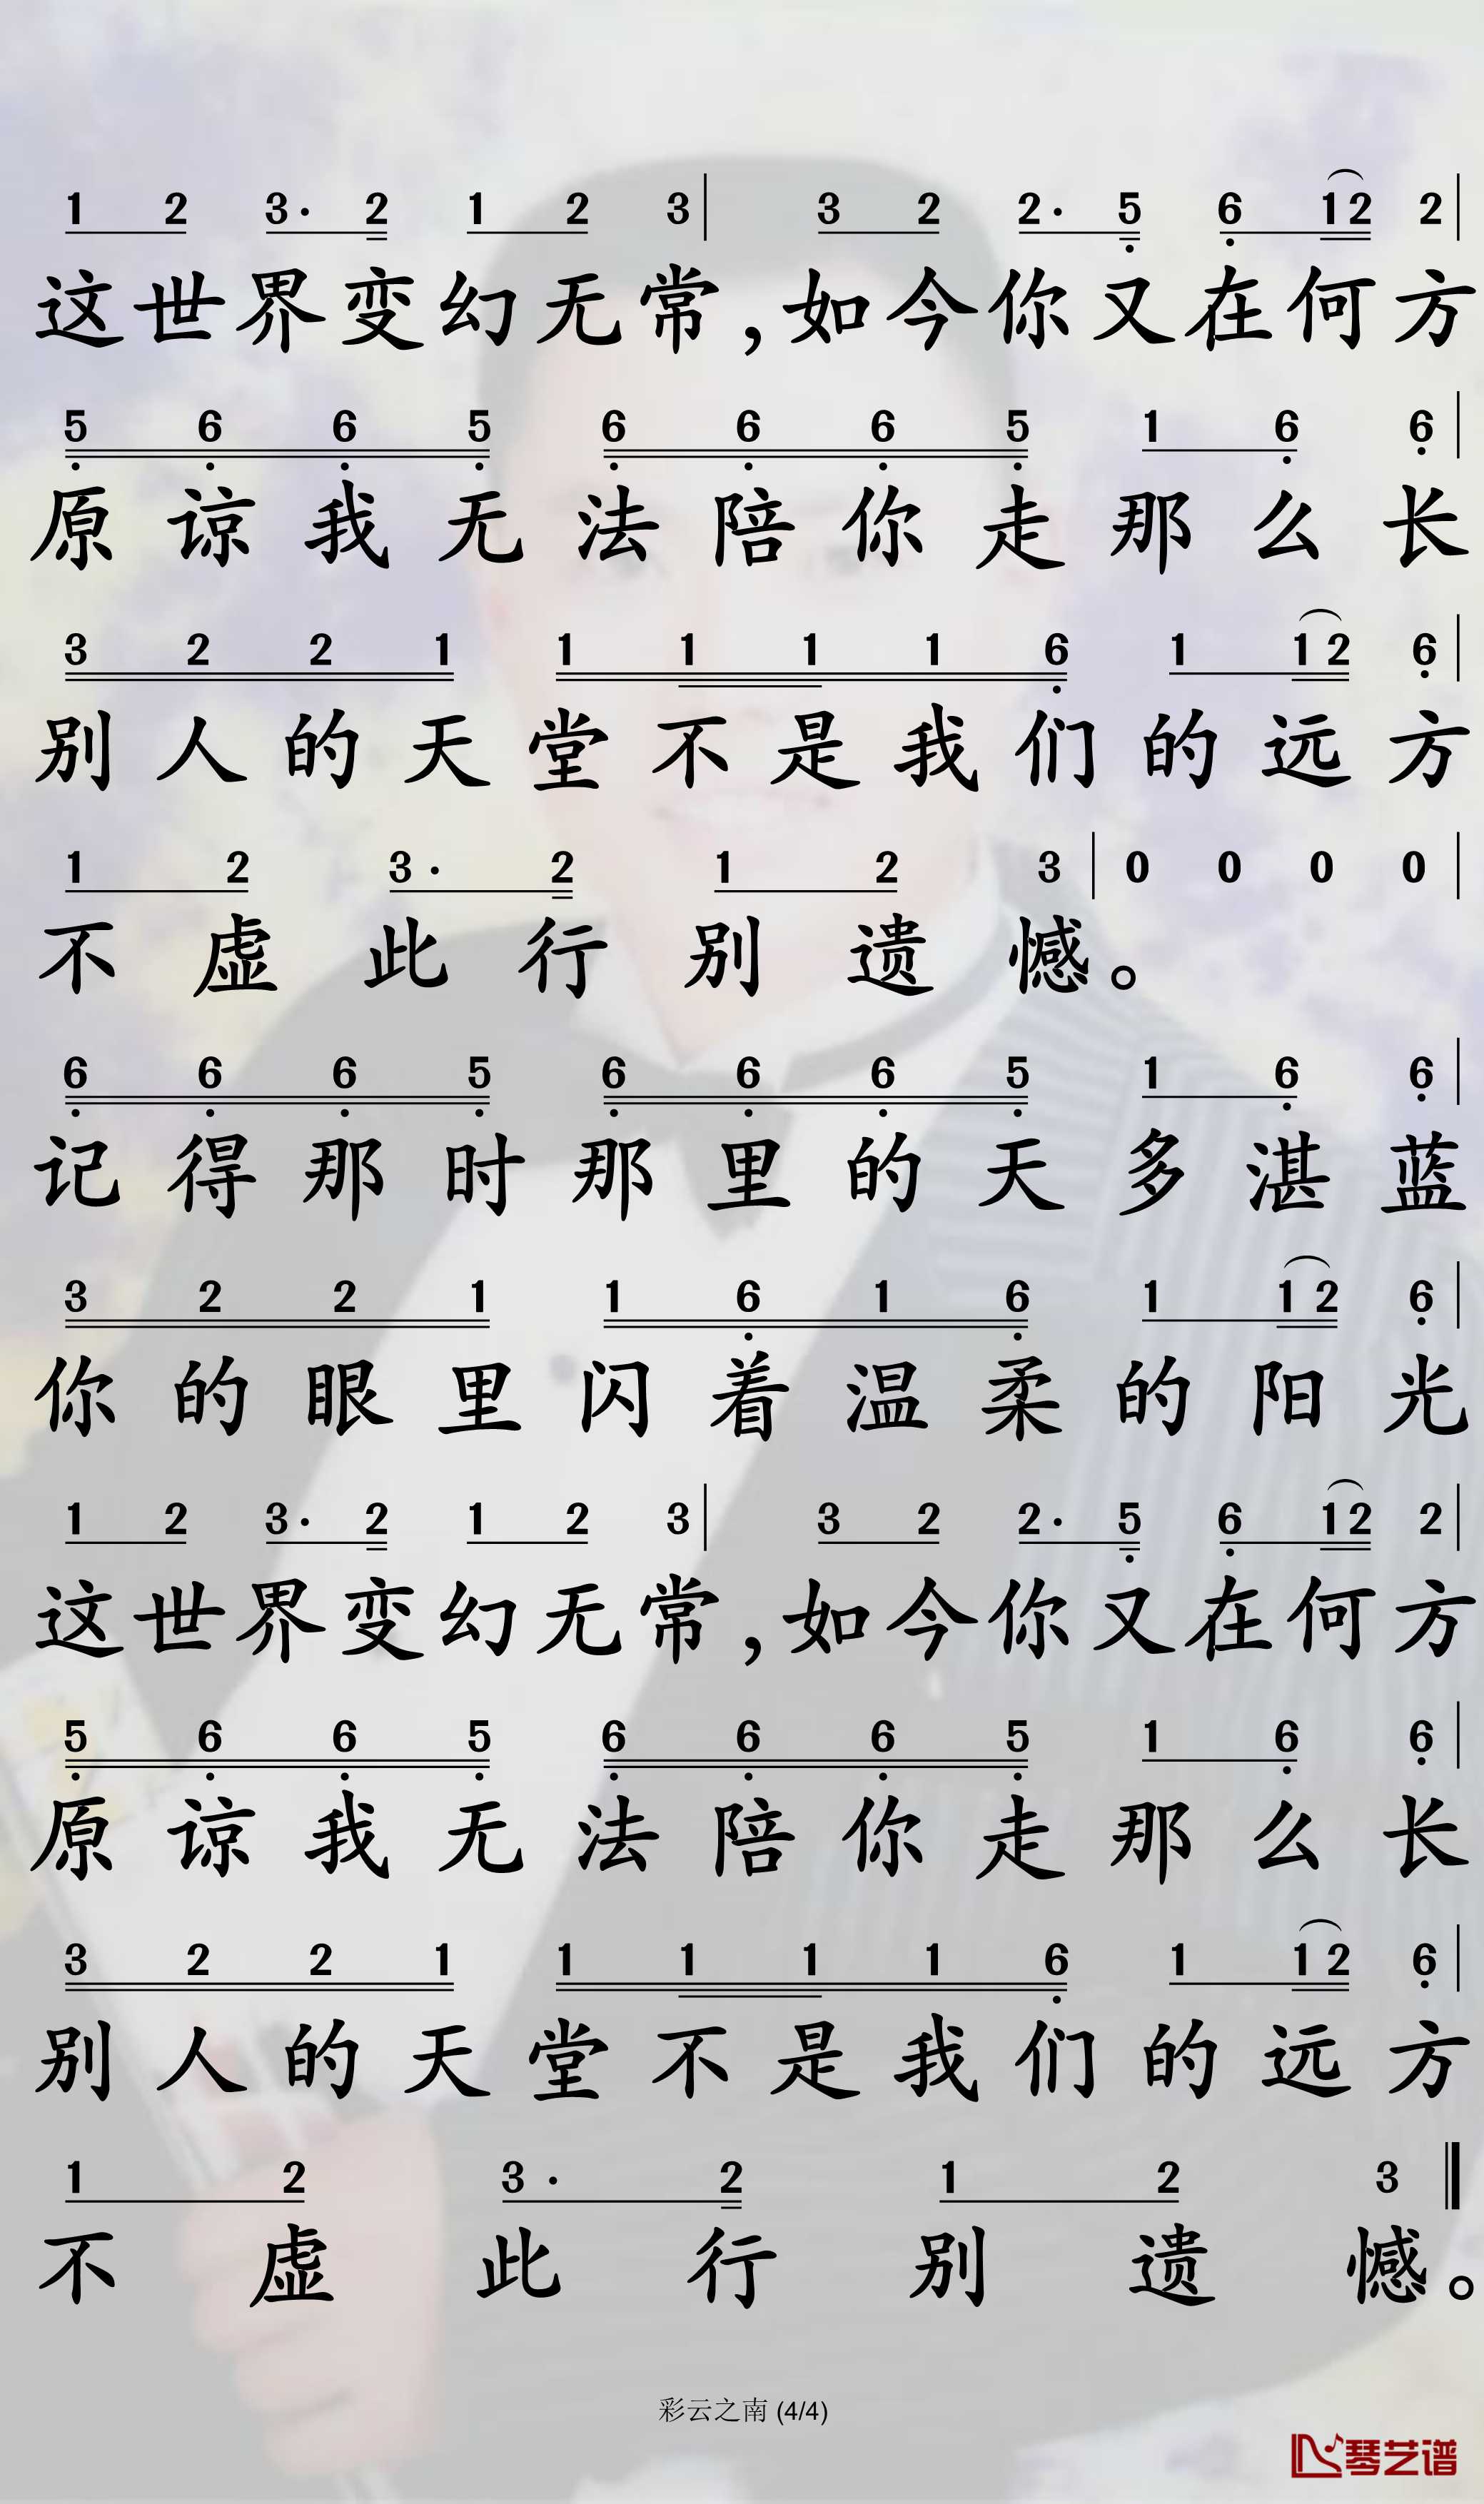 1 2 3· 2 1 2 3 | 3 2 2· 5 6 12 2 |
这世界变幻无常,如今你又在何方
5 6 6 5 6 6 6 5 1 6 6 |
原谅我无法陪你走那么长
3 2 2 1 1 1 1 1 6 1 12 6 |
别人的天堂不是我们的远方
1 2 3· 2 1 2 3 | 0 0 0 0 |
不虚此行别遗憾。
6 6 6 5 6 6 6 5 1 6 6 |
记得那时那里的天多湛蓝
3 2 2 1 1 6 1 6 1 12 6 |
你的眼里闪着温柔的阳光
1 2 3· 2 1 2 3 | 3 2 2· 5 6 12 2 |
这世界变幻无常,如今你又在何方
5 6 6 5 6 6 6 5 1 6 6 |
原谅我无法陪你走那么长
3 2 2 1 1 1 1 1 6 1 12 6 |
别人的天堂不是我们的远方
1 2 3· 2 1 2 3
不虚此行别遗憾。
彩云之南 (4/4)
琴艺谱